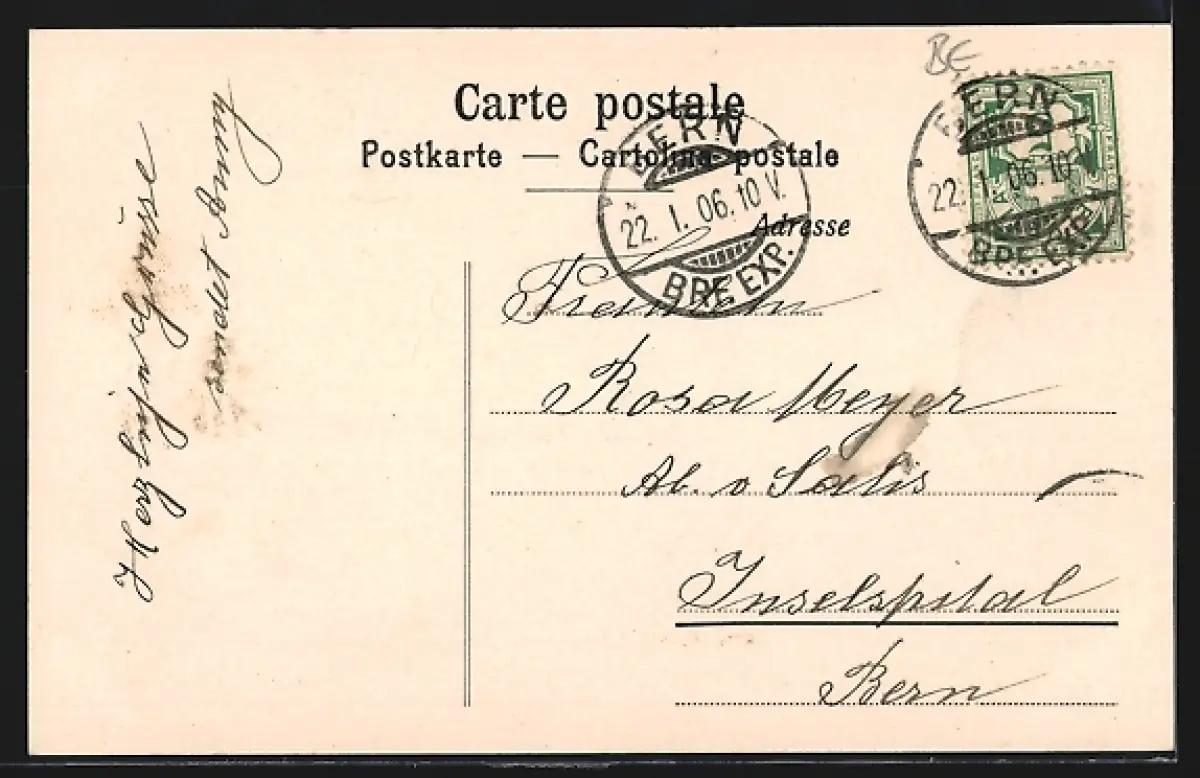 BE
Carte postale
Postkarte — Cartolina postale
Adresse
BERN
22. I. 06. 10 V.
BRF. EXP.
BERN
22. I. 06. 10
BRF. EXP.
Herzliche Grüsse
sendet Anny
Fräulein
Rosa Meyer
Ab. v Salis
Inselspital
Bern